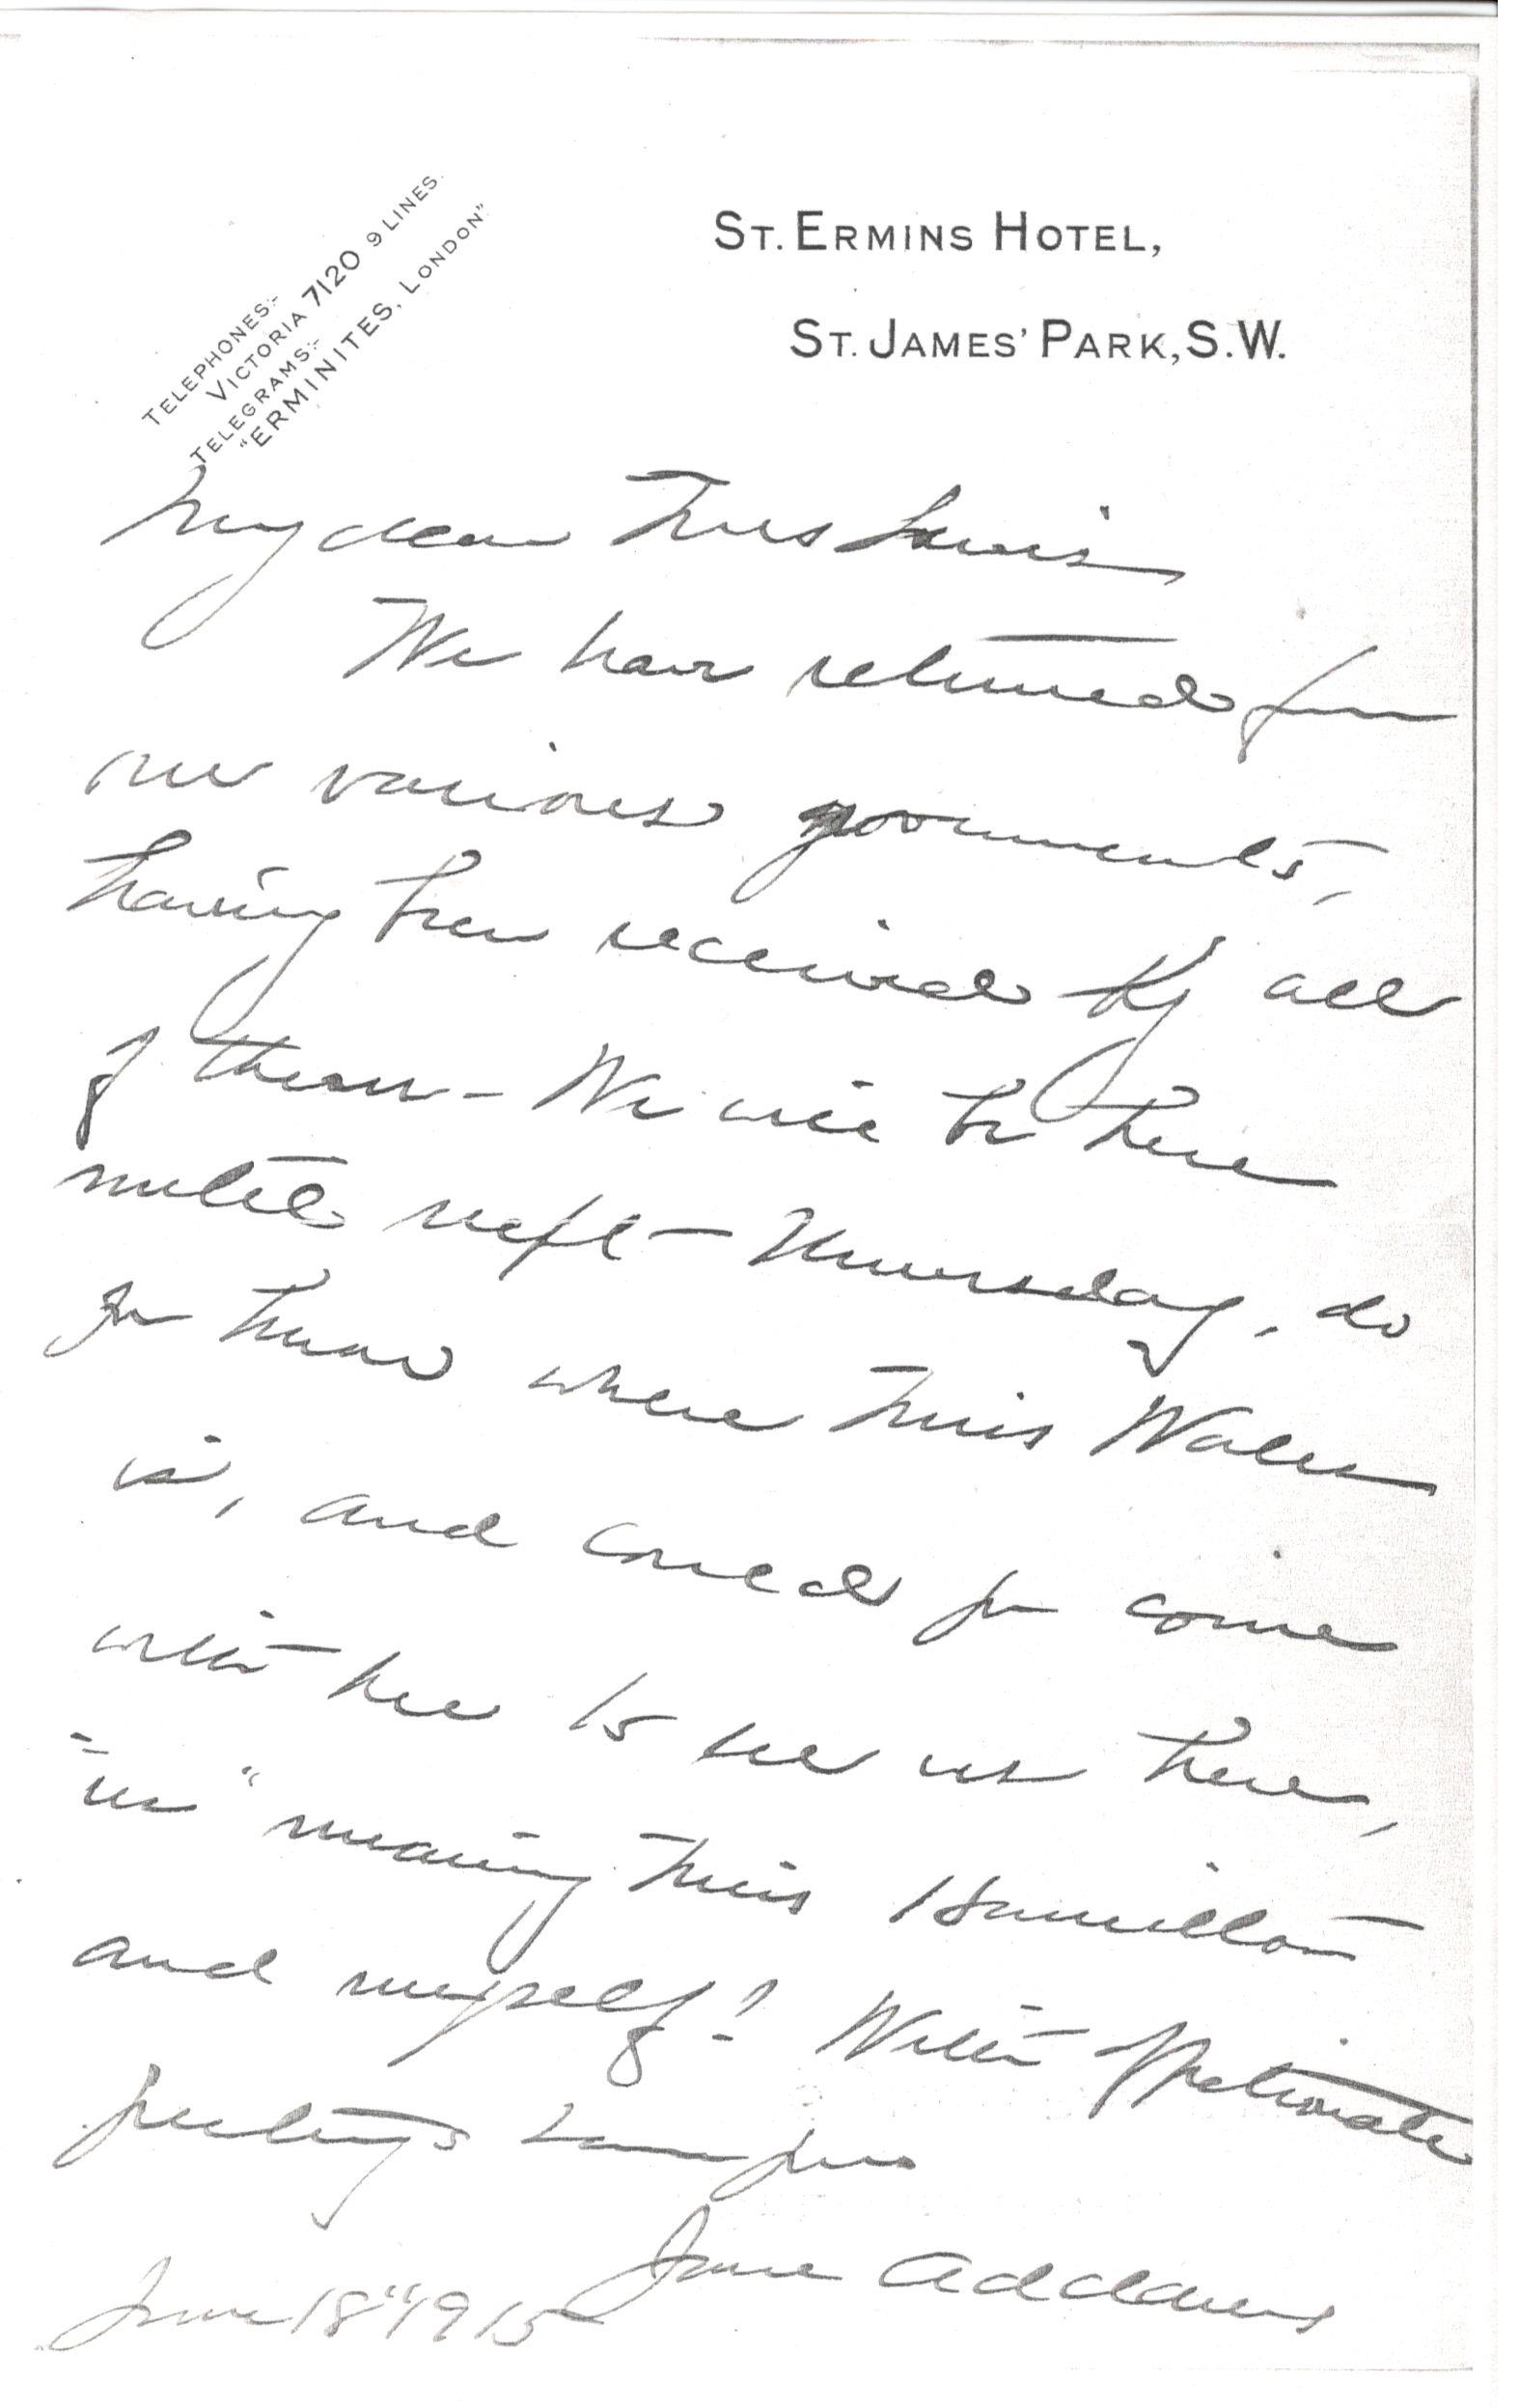 TELEPHONES:-
VICTORIA 7120 9 LINES.
TELEGRAMS:-
"ERMINITES, LONDON".
ST. ERMINS HOTEL,
ST. JAMES' PARK, S.W.
My dear Miss Lewis
We have returned from
our various governments,
having been received by all
of them - We will be here
until next Thursday, do
you know where Miss Wales
is, and could you come
with her to see us here,
"us" meaning Miss Hamilton
and myself! With affectionate
greetings I am yours
Jane Addams
June 18" 1915